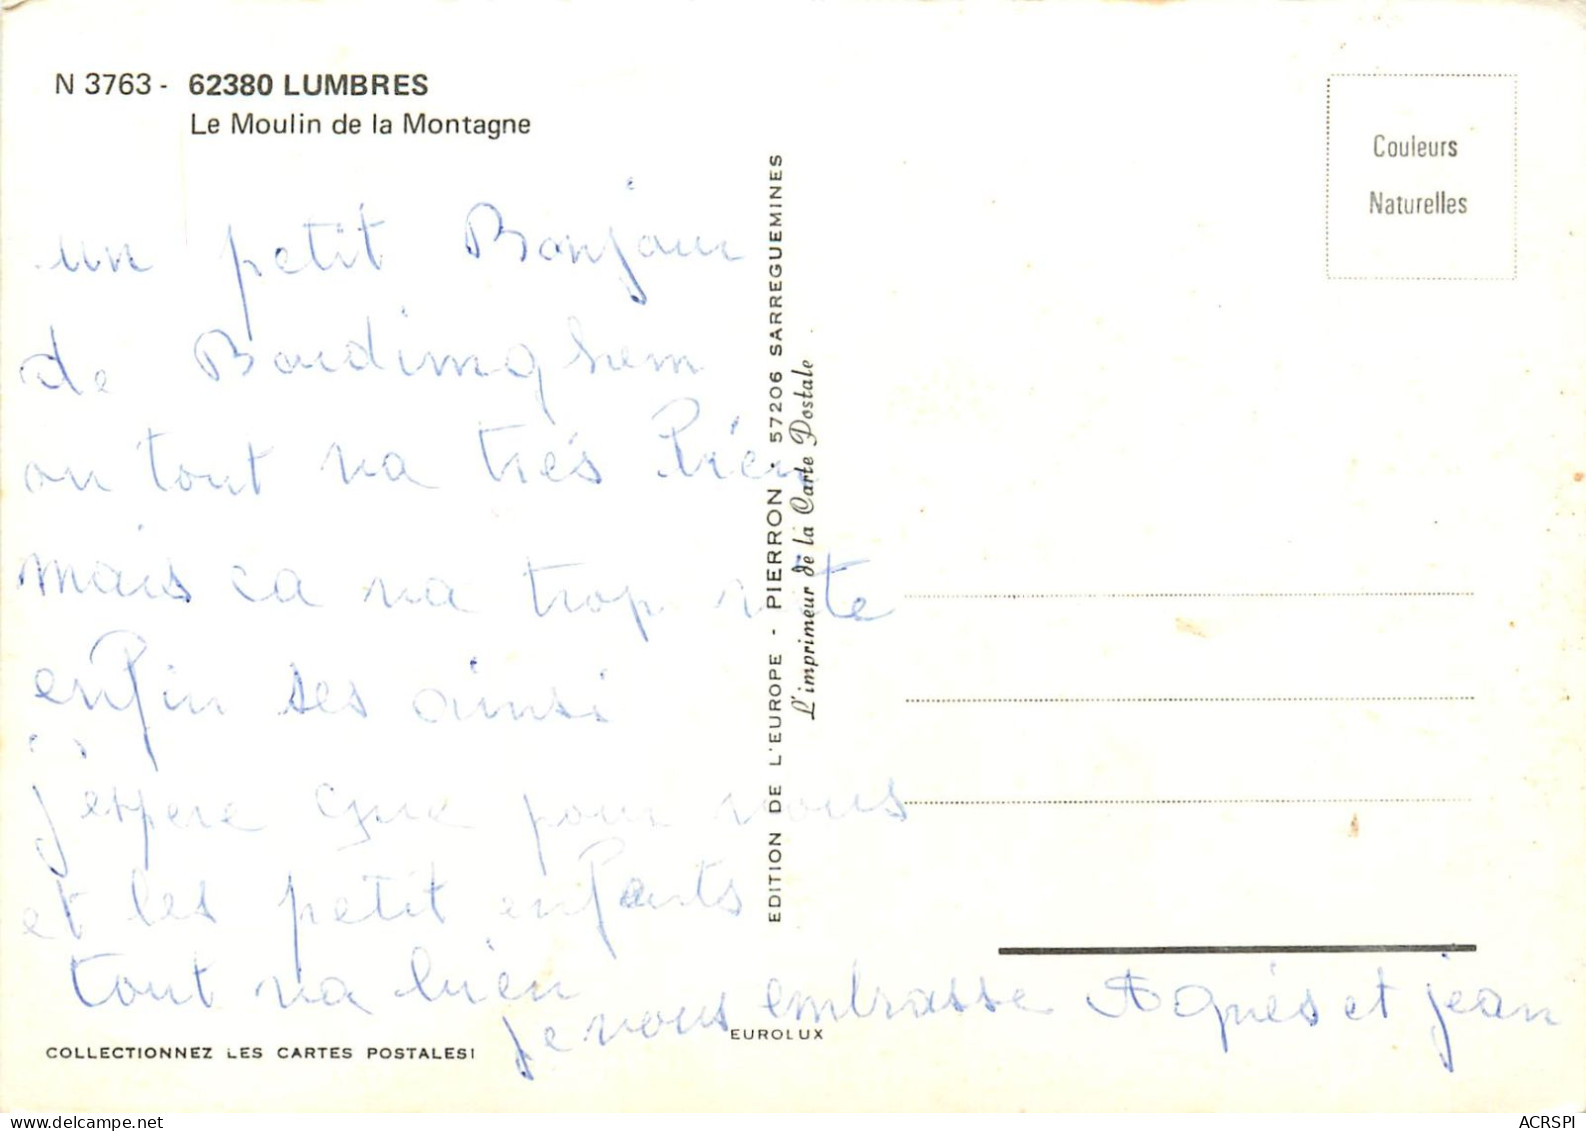 N 3763 - 62380 LUMBRES
Le Moulin de la Montagne
Couleurs
Naturelles
un petit Bonjour
de Boudimghem
ou tout va trés bien
mais ca va trop vite
enfin ses ainsi
j'espere que pour vous
et les petit enfants
tout va bien
je vous embrasse Agnés et jean
EDITION DE L'EUROPE - PIERRON - 57206 SARREGUEMINES
L'imprimeur de la Carte Postale
EUROLUX
COLLECTIONNEZ LES CARTES POSTALES!
ACRSPI